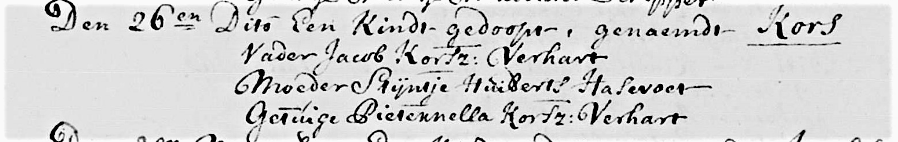 Den 26en Dito Een Kindt gedoopt, genaemdt Kors
Vader Jacob Korsz: Verhart
Moeder Stijntje Huiberts Hasevoet
Getuige Pieternella Korsz: Verhart